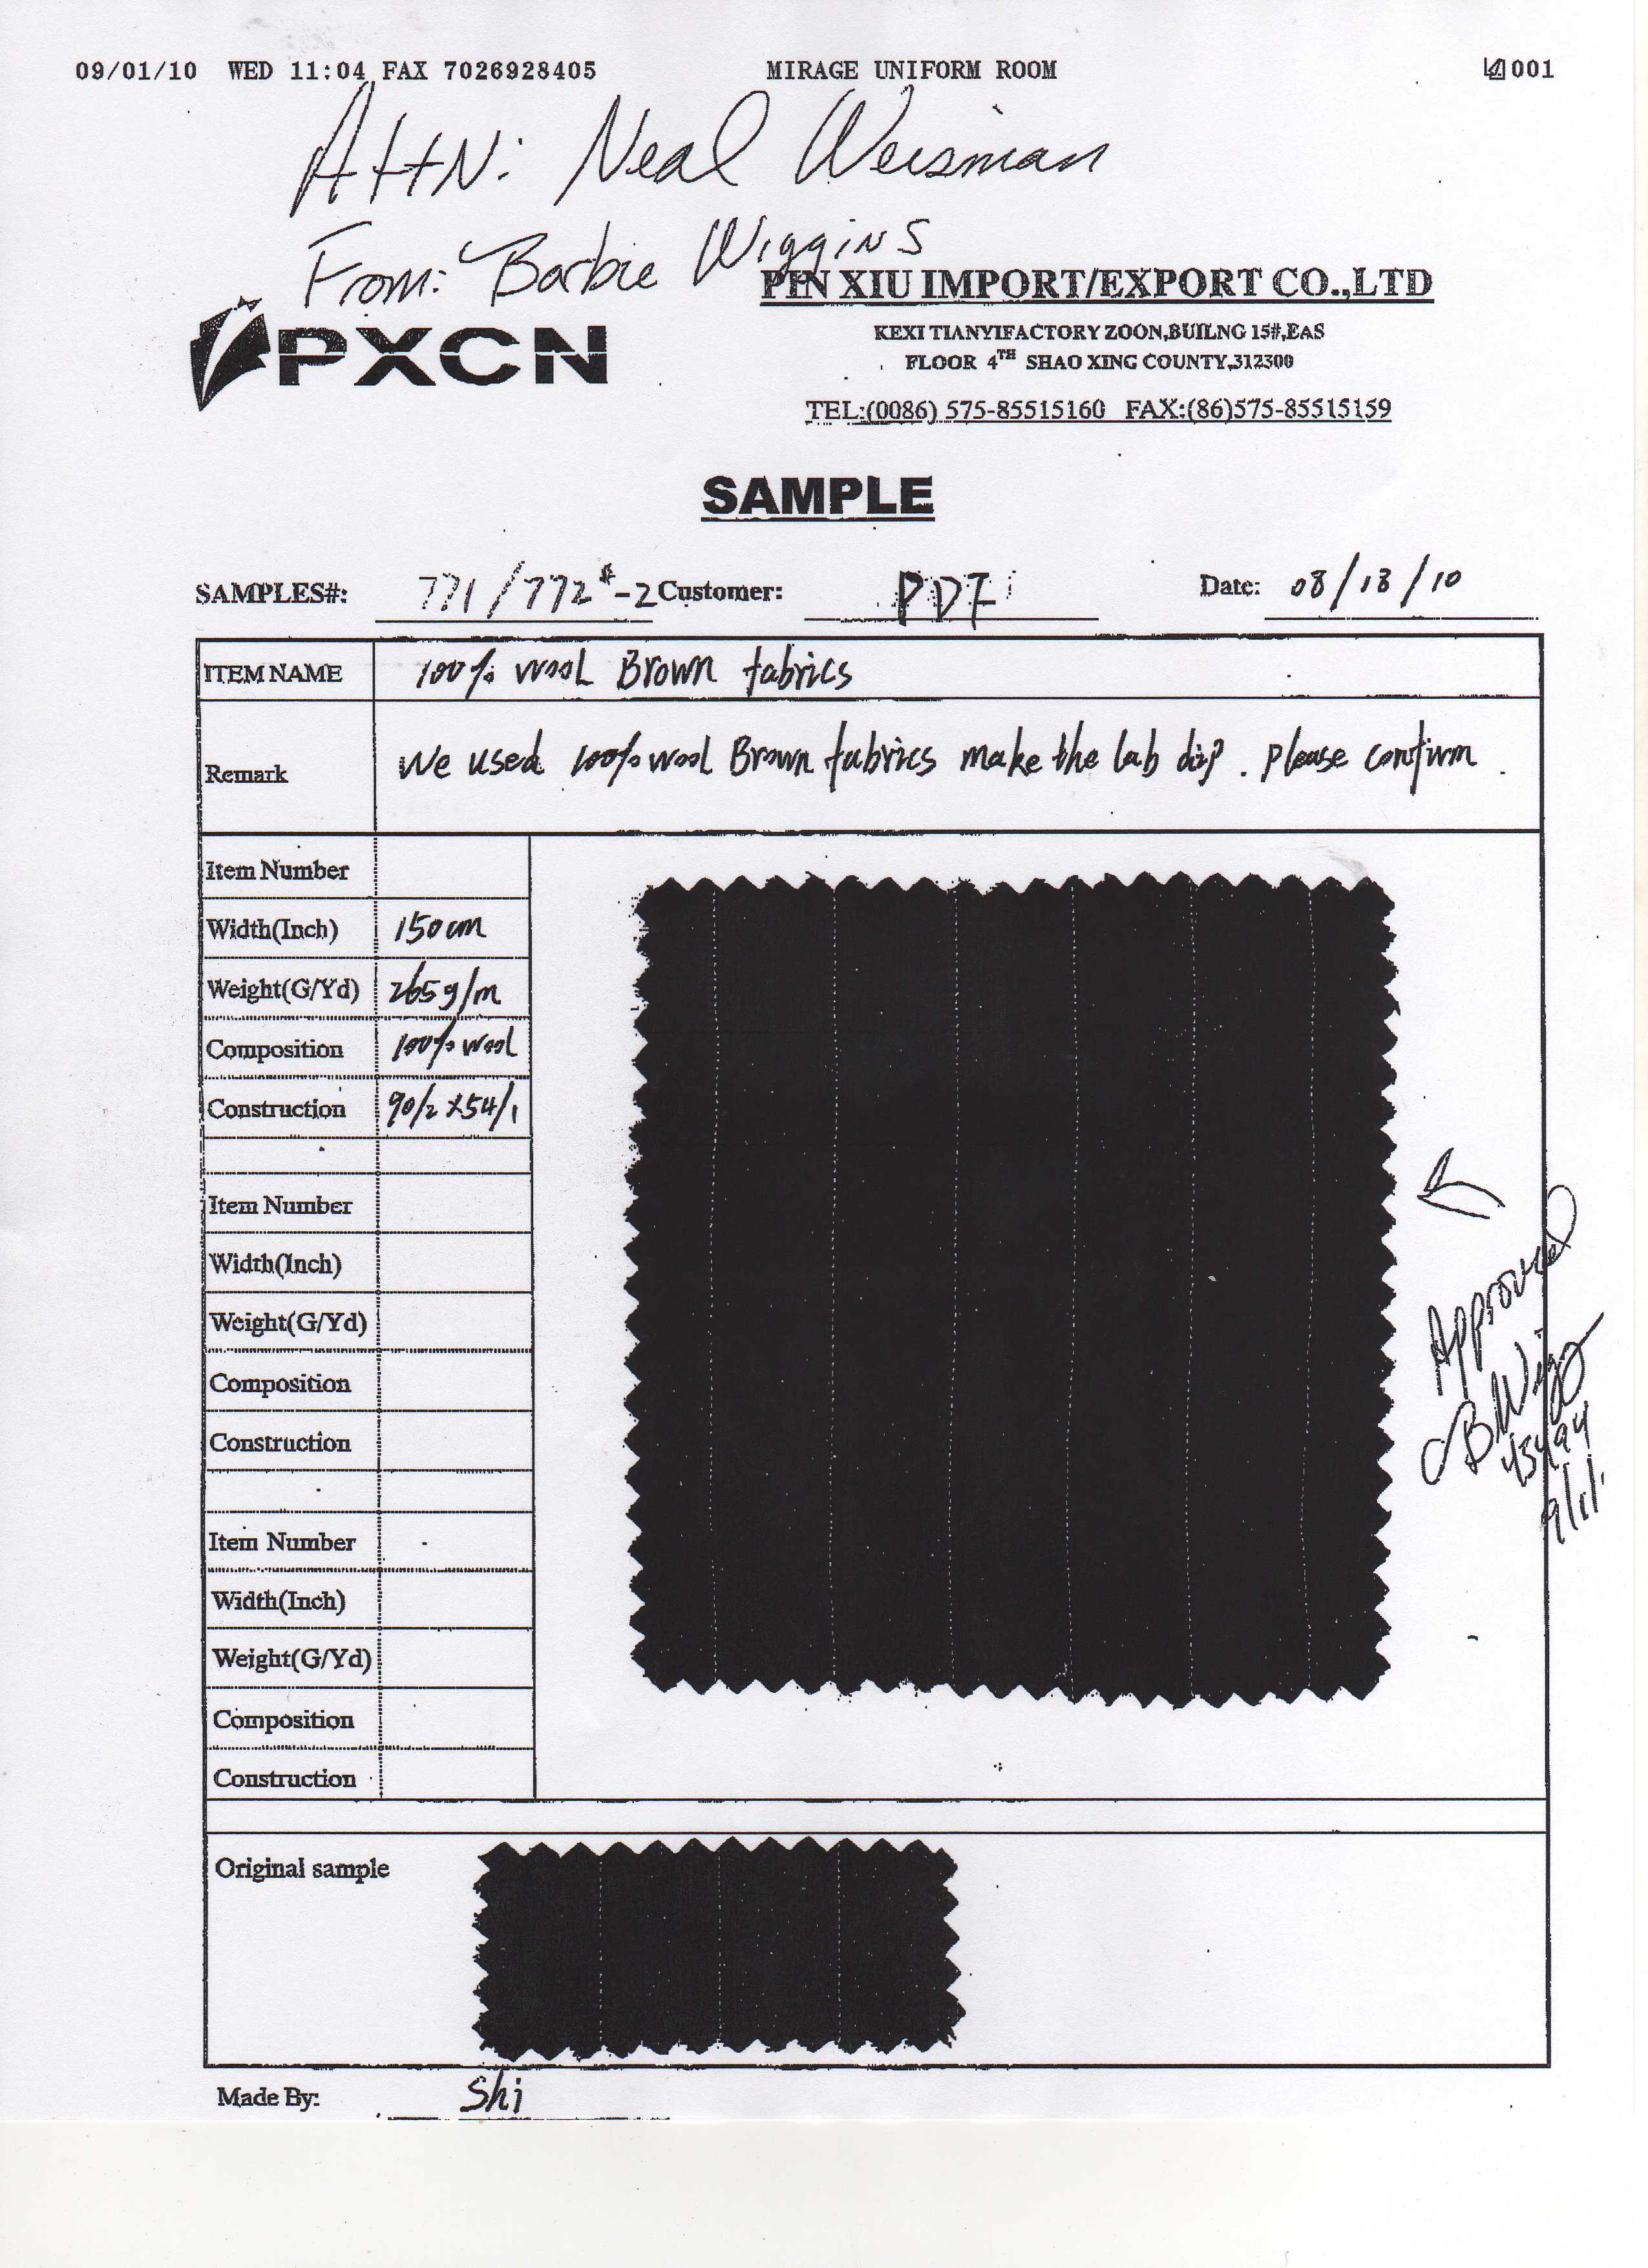 09/01/10 WED 11:04 FAX 7026928405 MIRAGE UNIFORM ROOM 001
AttN: Neal Weisman
From: Barbie Wiggins
PIN XIU IMPORT/EXPORT CO.,LTD
PXCN
KEXI TIANYIFACTORY ZOON,BUILNG 15#,EAS
FLOOR 4TH SHAO XING COUNTY,312300
TEL:(0086) 575-85515160 FAX:(86)575-85515159
SAMPLE
SAMPLES#: 771/772#-2 Customer: PDF Date: 08/18/10
ITEM NAME 100% wool Brown fabrics
Remark We used 100% wool Brown fabrics make the lab dip. Please confirm.
Item Number
Width(Inch) 150cm
Weight(G/Yd) 265g/m
Composition 100% wool
Construction 90/2 X54/1
Item Number
Width(Inch)
Weight(G/Yd)
Composition
Construction
Item Number
Width(Inch)
Weight(G/Yd)
Composition
Construction
Approved
Original sample
Made By: Shi